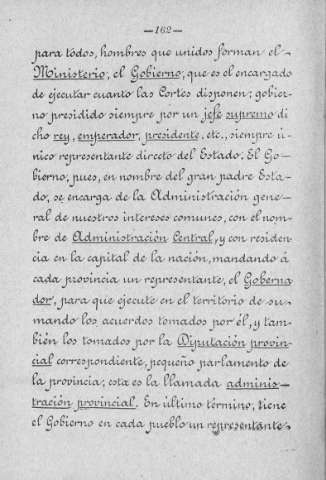 —162—
para todos, hombres que unidos forman el
Ministerio, el Gobierno, que es el encargado
de ejecutar cuanto las Cortes disponen; gobier-
no presidido siempre por un jefe supremo di
cho rey, emperador, presidente, etc., siempre ú-
nico representante directo del Estado. El Go-
bierno, pues, en nombre del gran padre Esta-
do, se encarga de la Administración gene-
ral de nuestros intereses comunes, con el nom-
bre de Administración Central, y con residen
cia en la capital de la nación, mandando á
cada provincia un representante, el Goberna
dor, para que ejecute en el territorio de su
mando los acuerdos tomados por él, y tam-
bién los tomados por la Diputación provin-
cial correspondiente, pequeño parlamento de
la provincia; esta es la llamada adminis-
tración provincial. En último término, tiene
el Gobierno en cada pueblo un representante